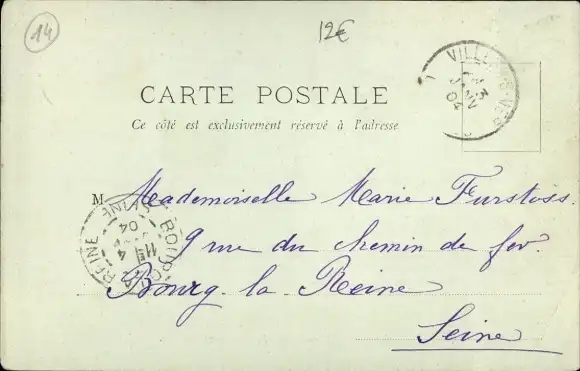 14
12€
CARTE POSTALE
Ce côté est exclusivement réservé à l'adresse
M Mademoiselle Marie Furstoss
9 rue du chemin de fer
Bourg-la-Reine
Seine
04
REINE
SEINE
04